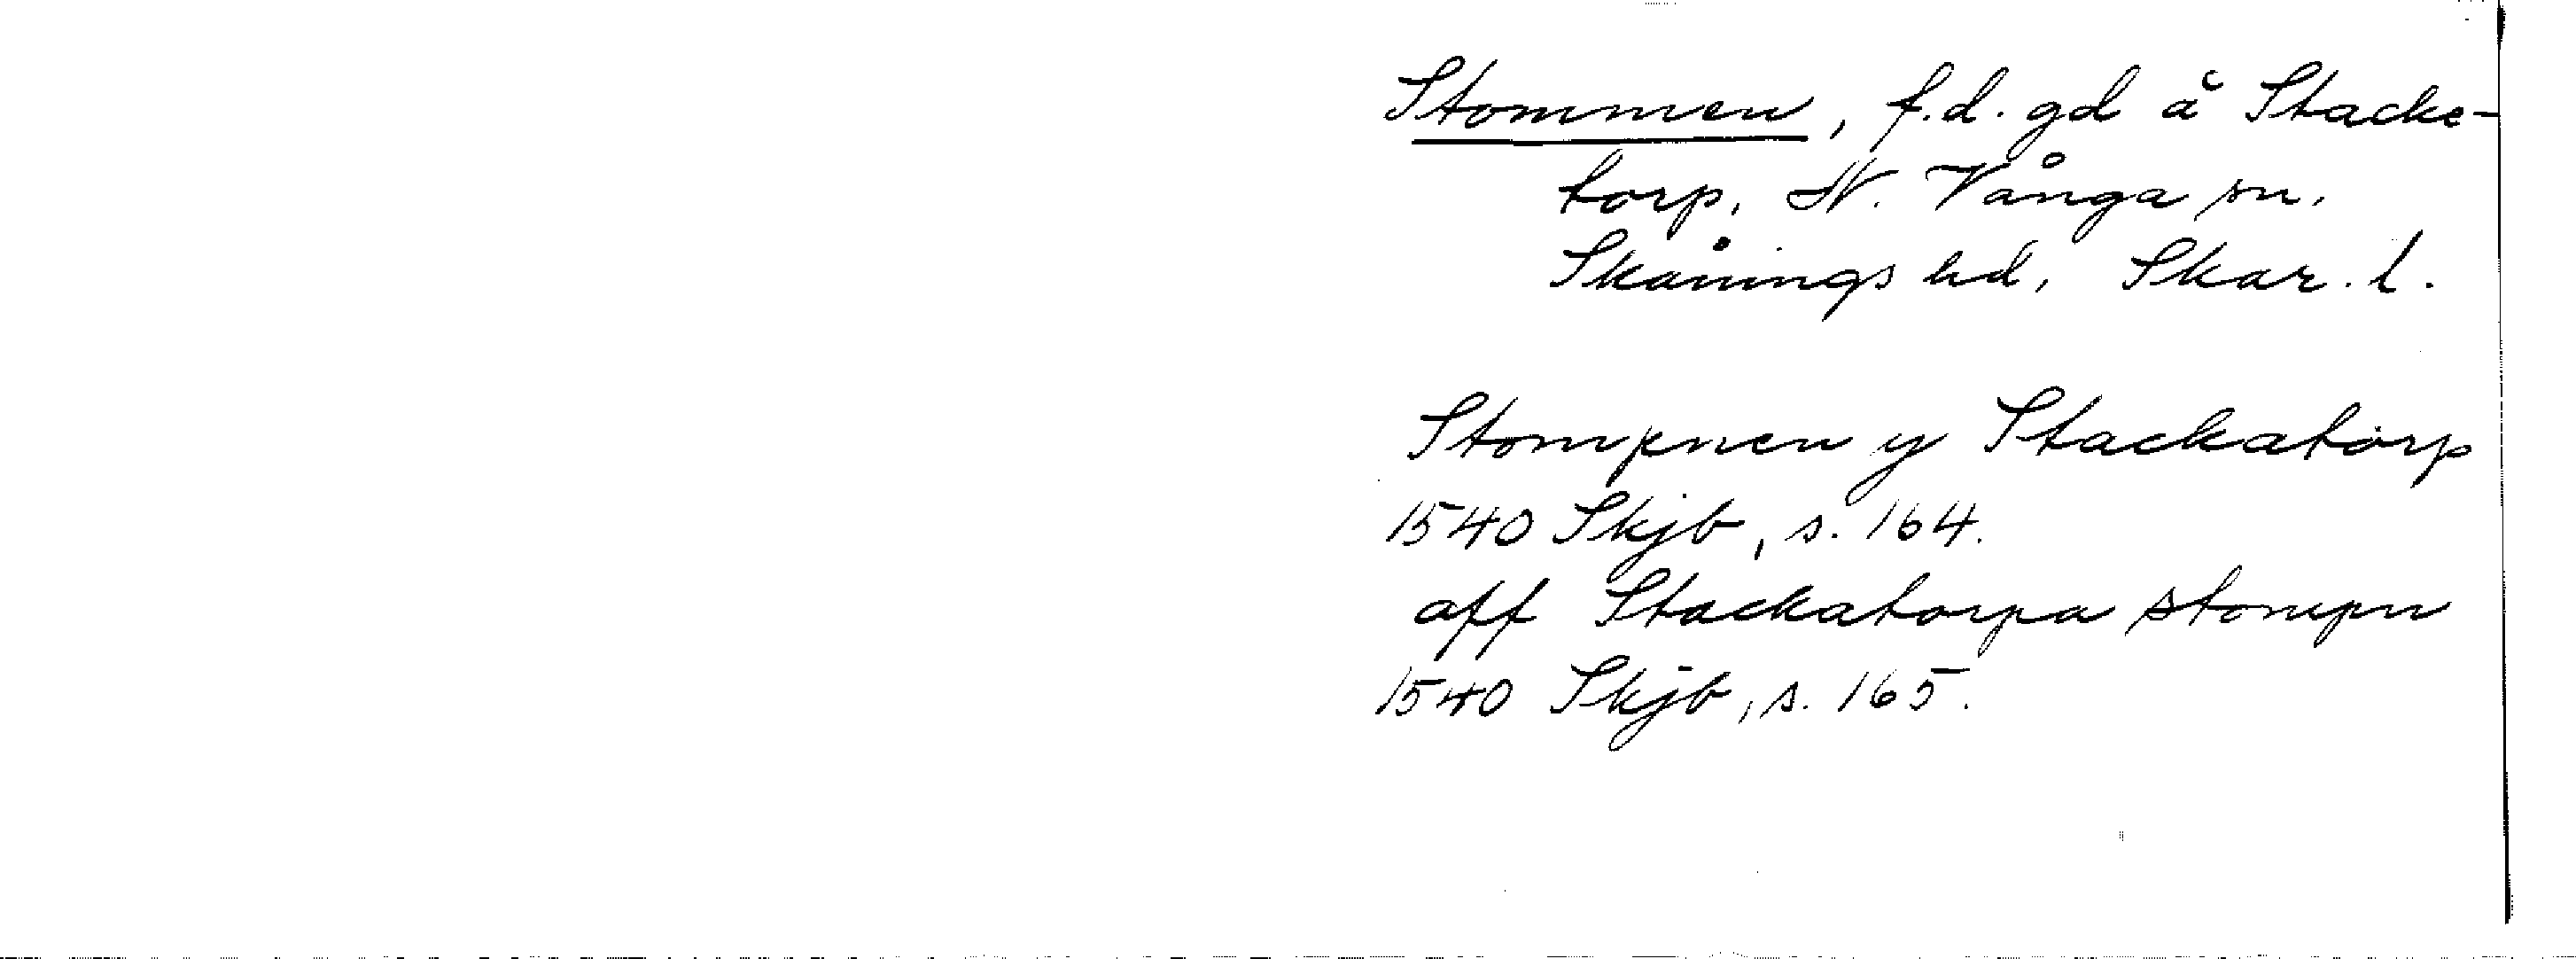 Stommen, f.d. gd å Stacke-
torp, N. Vånga sn.
Skånings hd, Skar. l.
Stompnen y Stackatorp
1540 Skjb, s. 164.
aff Stackatorpa stompn
1540 Skjb, s. 165.